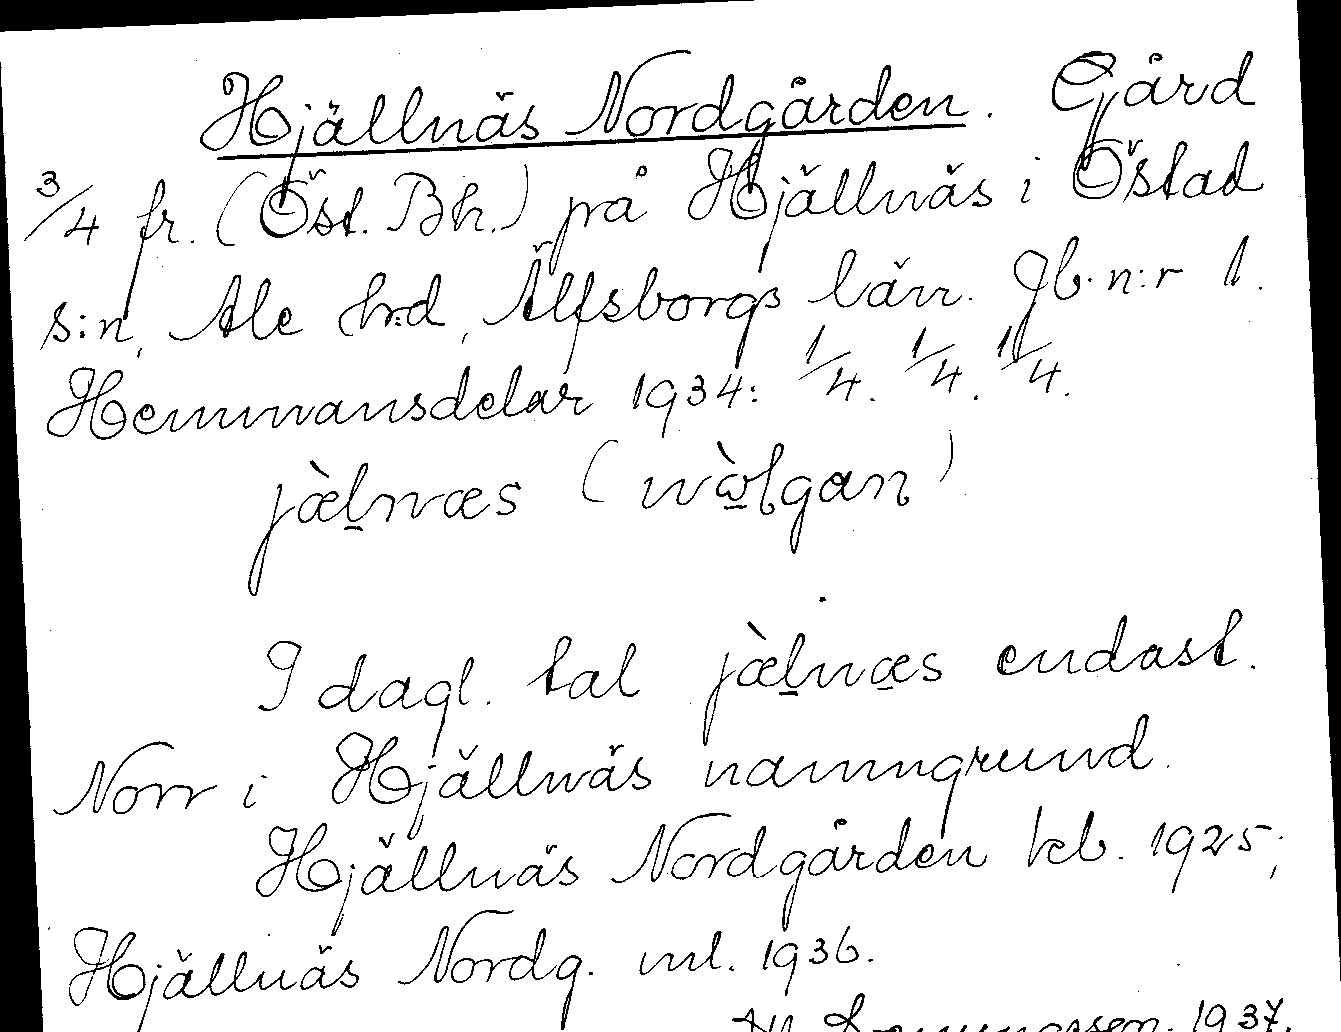 Hjällnäs Nordgården. Gård
3/4 fr. (Öst. Bh.) på Hjällnäs i Östad
s:n, Ale hrd, Älfsborgs län. Jb. n:r 1.
Hemmansdelar 1934: 1/4. 1/4. 1/4.
jæ̀l̠næs (nɷ̀l̠gan)
I dagl. tal jæ̀l̠næs endast.
Norr i Hjällnäs namngrund.
Hjällnäs Nordgården kb. 1925;
Hjällnäs Nordg. ml. 1936.
1937.